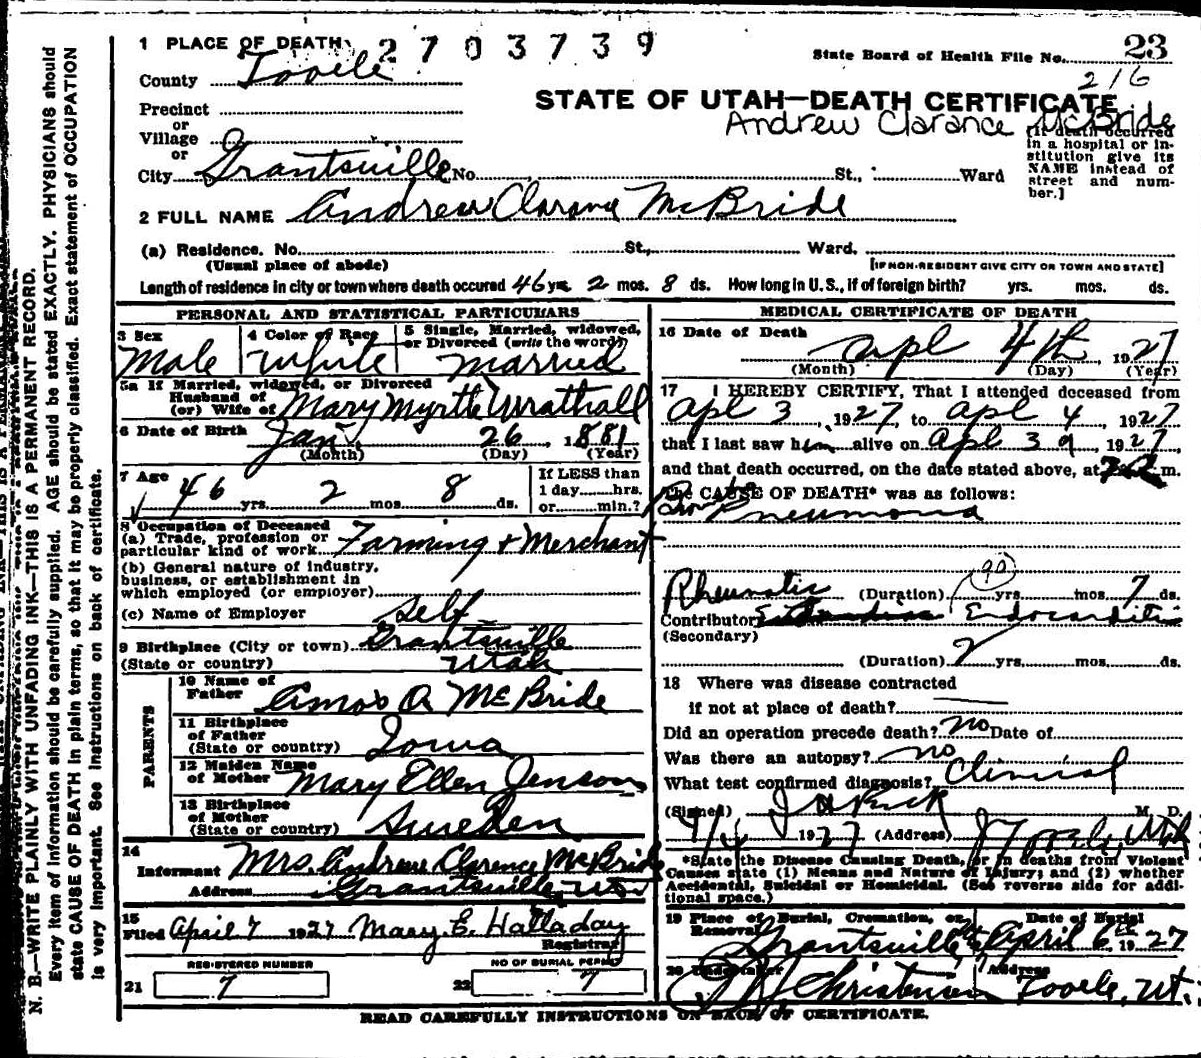 1 PLACE OF DEATH 2703739
State Board of Health File No. 23
County Tooele 216
Precinct
STATE OF UTAH—DEATH CERTIFICATE
or
Village
Andrew Clarance McBride
or
City Grantsville No. St., Ward
[If death occurred
in a hospital or in-
stitution give its
NAME instead of
street and num-
ber.]
2 FULL NAME Andrew Clarance McBride
(a) Residence. No. St., Ward.
(Usual place of abode) [IF NON-RESIDENT GIVE CITY OR TOWN AND STATE]
Length of residence in city or town where death occured 46 yrs. 2 mos. 8 ds. How long in U. S., if of foreign birth? yrs. mos. ds.
PERSONAL AND STATISTICAL PARTICULARS
3 Sex 4 Color of Race 5 Single, Married, widowed,
or Divorced (write the word)
Male White married
5a If Married, widowed, or Divorced
Husband of
(or) Wife of Mary Myrtle Wrathall
6 Date of Birth Jan 26, 1881
(Month) (Day) (Year)
7 Age 46 yrs. 2 mos. 8 ds.
If LESS than
1 day hrs.
or min.?
8 Occupation of Deceased
(a) Trade, profession or
particular kind of work Farming + Merchant
(b) General nature of industry,
business, or establishment in
which employed (or employer)
(c) Name of Employer Self
9 Birthplace (City or town) Grantsville
(State or country) Utah
PARENTS
10 Name of
Father Amos A. McBride
11 Birthplace
of Father
(State or country) Iowa
12 Maiden Name
of Mother Mary Ellen Jenson
13 Birthplace
of Mother
(State or country) Sweden
14
Informant Mrs. Andrew Clarence McBride
Address Grantsville Utah
15
Filed April 7 1927 Mary E. Halladay
Registrar
REGISTERED NUMBER NO OF BURIAL PERMIT
21 7 22 7
MEDICAL CERTIFICATE OF DEATH
16 Date of Death
Apl 4th 1927
(Month) (Day) (Year)
17 I HEREBY CERTIFY, That I attended deceased from
Apl 3, 1927, to Apl 4 1927
that I last saw him alive on Apl 3 1927,
and that death occurred, on the date stated above, at m.
The CAUSE OF DEATH* was as follows:
Pneumonia
90
Rheumatic (Duration) yrs. mos. 7 ds.
Contributory Endocarditis
(Secondary)
(Duration) 2 yrs. mos. ds.
18 Where was disease contracted
if not at place of death?
Did an operation precede death? no Date of
Was there an autopsy? no
What test confirmed diagnosis? Clinical
(Signed) M. D.
4/4 1927 (Address) Tooele, Utah
*State the Disease Causing Death, or in deaths from Violent
Causes state (1) Means and Nature of Injury; and (2) whether
Accidental, Suicidal or Homicidal. (See reverse side for addi-
tional space.)
19 Place of Burial, Cremation, or Date of Burial
Removal
Grantsville April 6th 1927
20 Undertaker Address
Christensen Tooele, Ut.
READ CAREFULLY INSTRUCTIONS ON BACK OF CERTIFICATE.
N. B.—WRITE PLAINLY WITH UNFADING INK—THIS IS A PERMANENT RECORD.
Every item of information should be carefully supplied. AGE should be stated EXACTLY. PHYSICIANS should
state CAUSE OF DEATH in plain terms, so that it may be properly classified. Exact statement of OCCUPATION
is very important. See instructions on back of certificate.